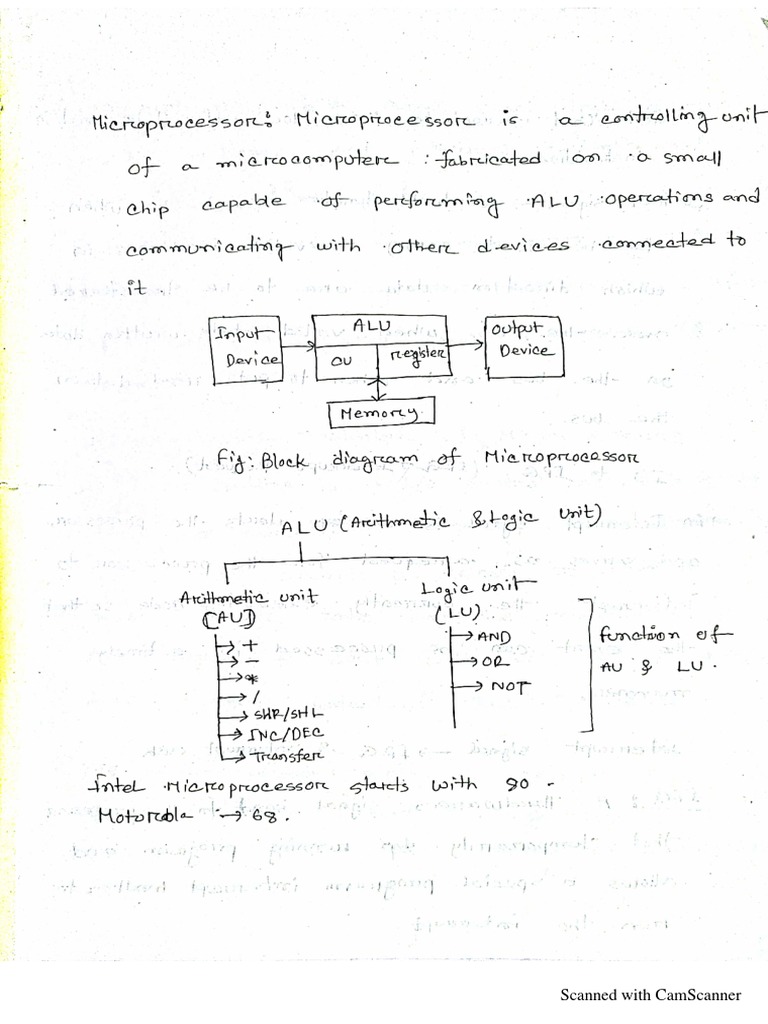 Microprocessor: Microprocessor is a controlling unit
of a microcomputer fabricated on a small
chip capable of performing ALU operations and
communicating with other devices connected to
it
Input
Device
ALU
CU
register
Output
Device
Memory
Fig: Block diagram of Microprocessor
ALU (Arithmetic & Logic Unit)
Arithmetic unit
(AU)
Logic unit
(LU)
→ +
→ -
→ *
→ /
→ SHR/SHL
→ INC/DEC
→ Transfer
→ AND
→ OR
→ NOT
function of
AU & LU.
Intel Microprocessor starts with 80 -
Motorola → 68.
Scanned with CamScanner